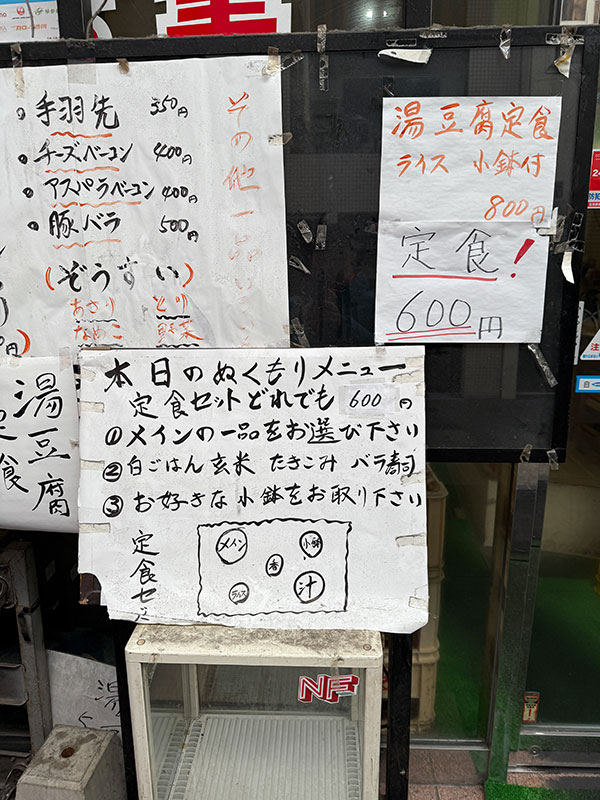 手羽先 350円
チーズベーコン 400円
アスパラベーコン 400円
豚バラ 500円
(ぞうすい)
あさり とり
なめこ 野菜
その他一品
湯豆腐定食
ライス 小鉢付
800円
定食!
600円
湯豆腐
定食
本日のぬくもりメニュー
定食セットどれでも 600円
①メインの一品をお選び下さい
②白ごはん 玄米 たきこみ バラ寿司
③お好きな小鉢をお取り下さい
定食セッ
メイン 小鉢
香
ライス 汁
NF
湯